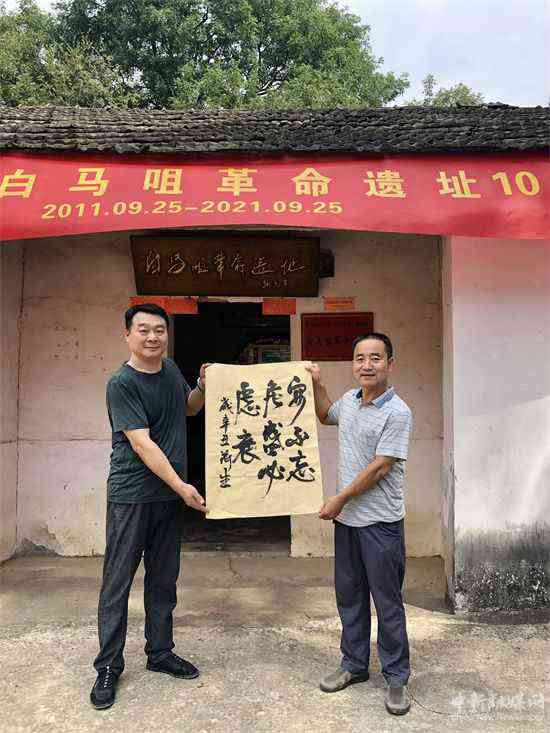 白马咀革命遗址10
2011.09.25-2021.09.25
白马咀革命遗址
安不忘
危盛必
虑衰
岁辛丑